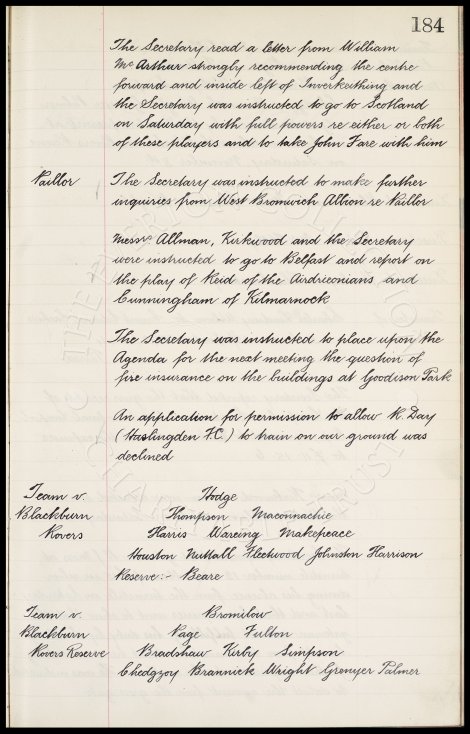 184
The Secretary read a letter from William
Mc Arthur strongly recommending the centre
forward and inside left of Inverkeithing and
the Secretary was instructed to go to Scotland
on Saturday with full powers re either or both
of these players and to take John Fare with him
Paillor
The Secretary was instructed to make further
inquiries from West Bromwich Albion re Paillor
Messrs Allman, Kirkwood and the Secretary
were instructed to go to Belfast and report on
the play of Reid of the Airdrieonians and
Cunningham of Kilmarnock
The Secretary was instructed to place upon the
Agenda for the next meeting the question of
fire insurance on the buildings at Goodison Park
An application for permission to allow R. Day
(Haslingden F.C.) to train on our ground was
declined
Team v.
Blackburn
Rovers
Hodge
Thompson Maconnachie
Harris Wareing Makepeace
Houston Nuttall Fleetwood Johnston Harrison
Reserve:- Beare
Team v.
Blackburn
Rovers Reserve
Bromilow
Page Fulton
Bradshaw Kirby Simpson
Chedgzoy Brannick Wright Grenyer Palmer
THE EVERTON COLLECTION
CHARITABLE TRUST